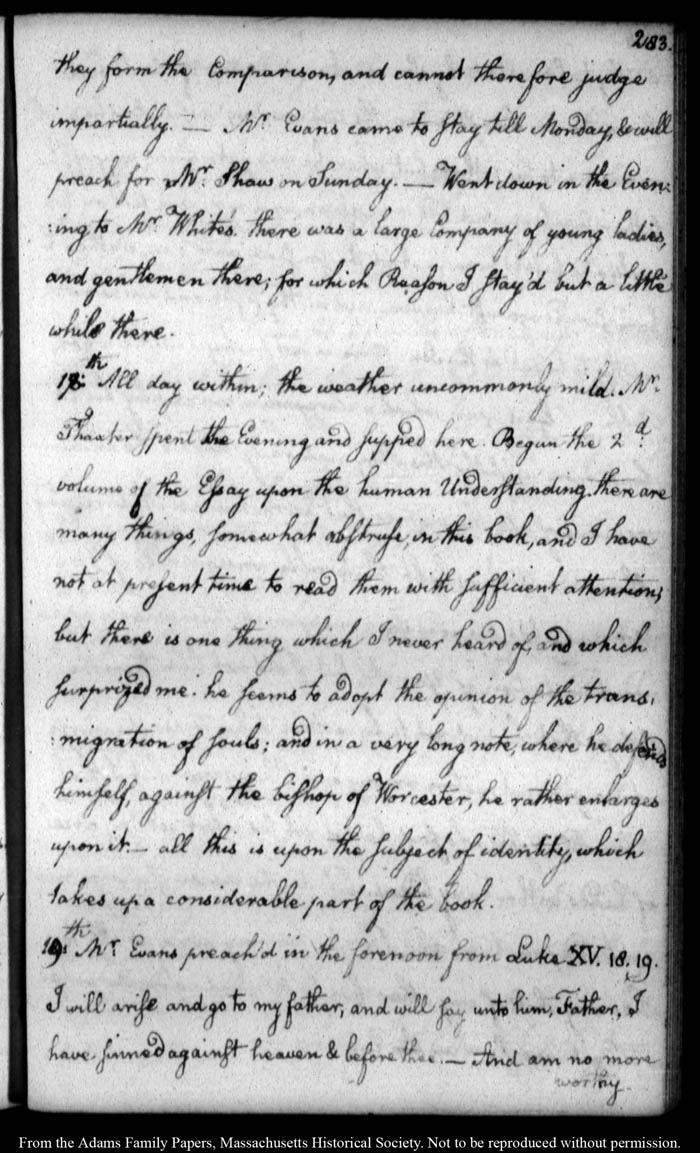 283.
they form the Comparison, and cannot therefore judge
impartially. — Mr. Evans came to stay till Monday, & will
preach for Mr. Shaw on Sunday. — Went down in the Even:
:ing to Mr. White's. there was a large Company of young ladies,
and gentlemen there; for which Reason I stay'd but a little
while there.
18:th All day within; the weather uncommonly mild. Mr.
Thaxter spent the Evening and supped here. Begun the 2d.
volume of the Essay upon the human Understanding. there are
many things, somewhat abstruse, in this book, and I have
not at present time to read them with sufficient attention;
but there is one thing which I never heard of, and which
surprized me: he seems to adopt the opinion of the trans:
:migration of souls; and in a very long note, where he defends
himself, against the bishop of Worcester, he rather enlarges
upon it — all this is upon the subject of identity, which
takes up a considerable part of the book.
19:th Mr. Evans preach'd in the forenoon from Luke XV. 18, 19.
I will arise and go to my father, and will say unto him, Father, I
have sinned against heaven & before thee. — And am no more
worthy
From the Adams Family Papers, Massachusetts Historical Society. Not to be reproduced without permission.